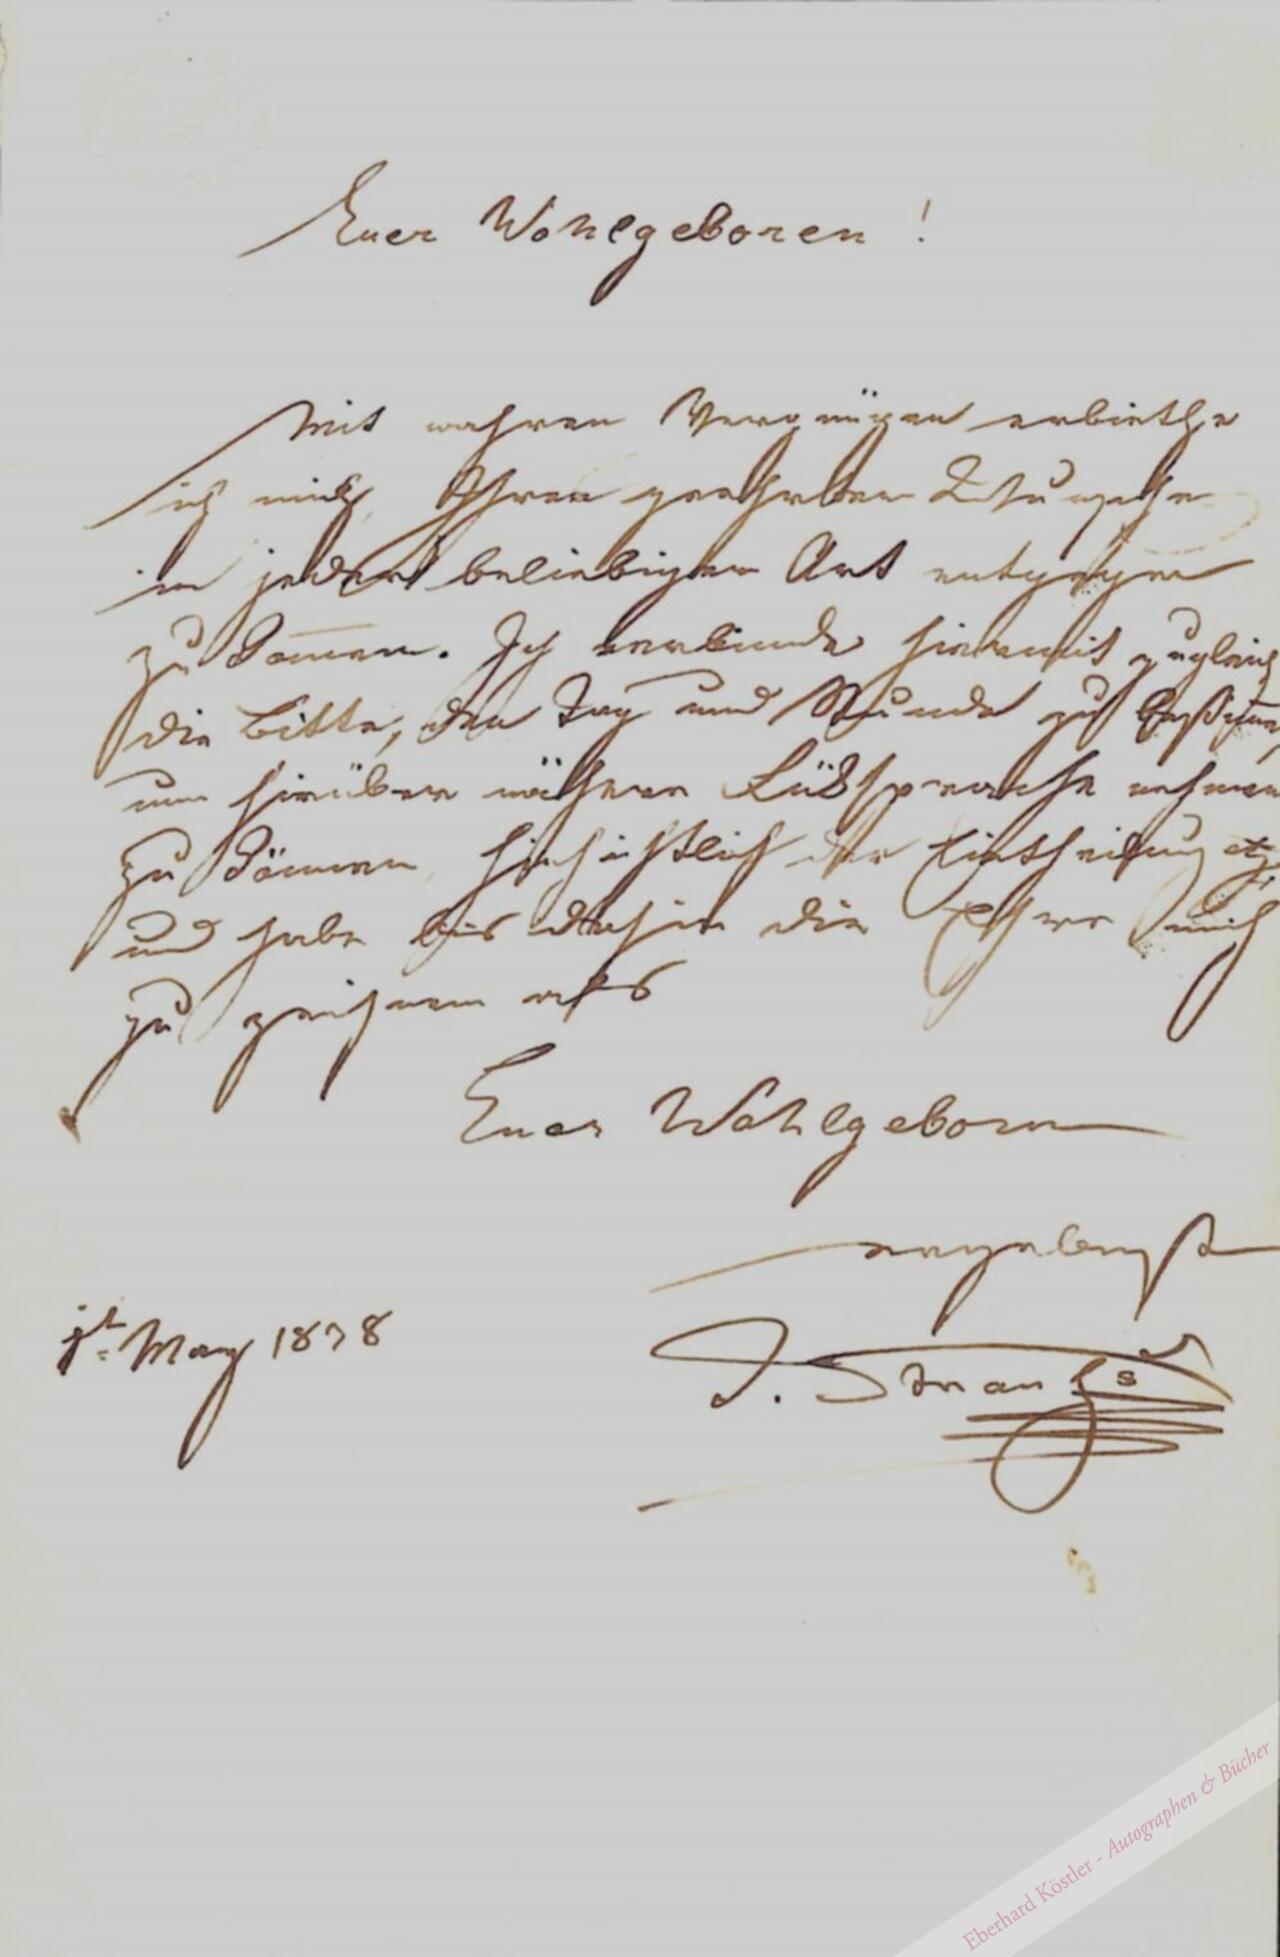 Euer Wohlgeboren!
Mit wahren Vergnügen erbiethe
ich mich, Ihren geehrten Wunsche
in jeder beliebigen Art entgegen
zu komen. Ich verbinde hiermit zugleich
die Bitte, den Tag und Stunde zu bestimen,
um hirüber nähere Rüksprache nehmen
zu könen, hinsichtlich der Eintheilung etz
und habe bis dahin die Ehre mich
zu zeichnen als
Euer Wohlgeborn
ergebenst
J. Strauß
May 1838
Eberhard Köstler - Autographen & Bücher